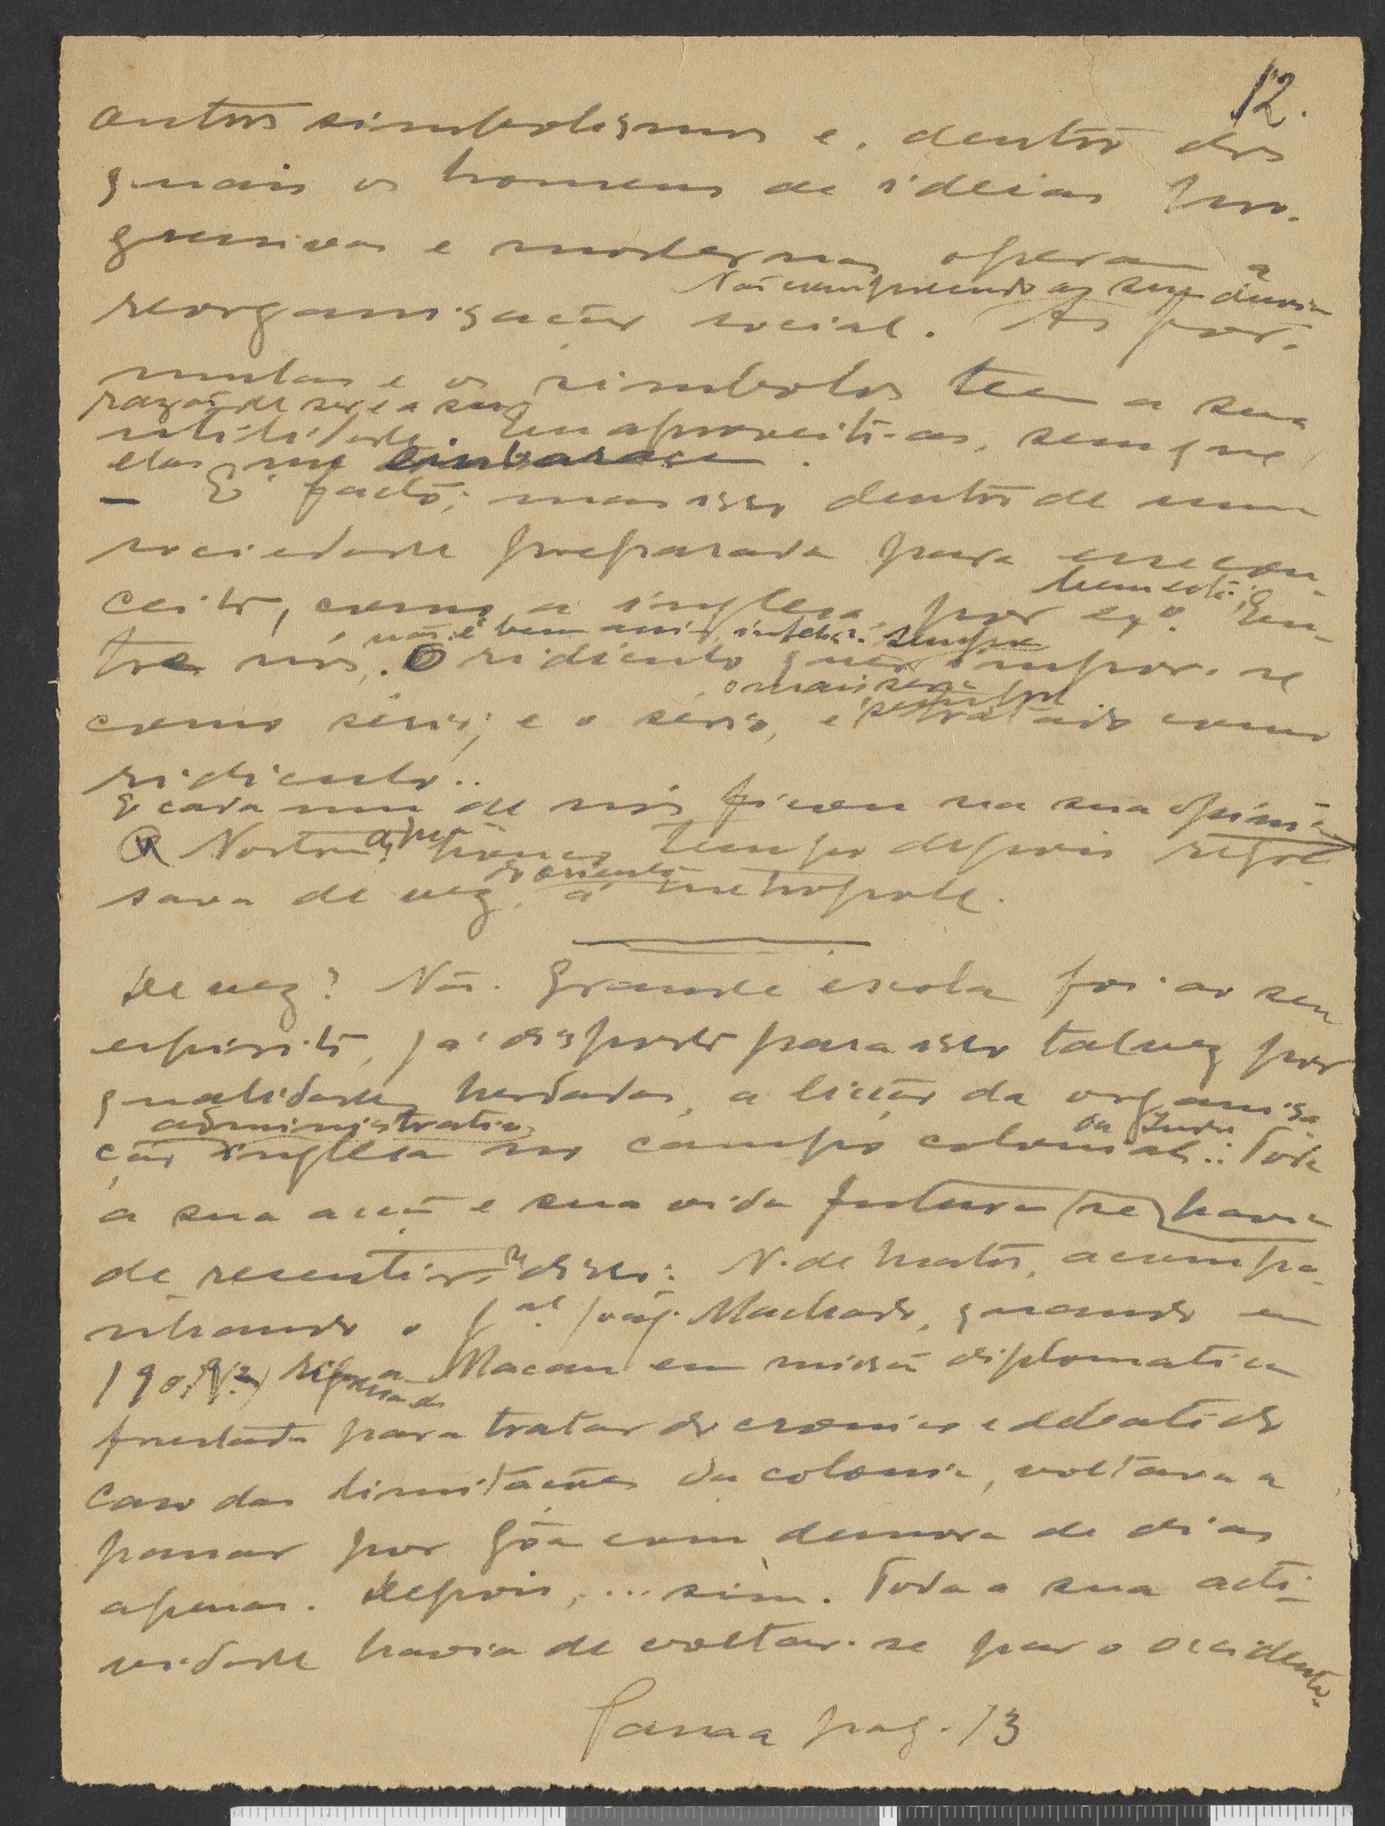 12.
outros simbolismos e, dentro dos
quais os homens de ideias pro-
gressivas e modernas operam a
Não compreendo as suas
reorganisação social. As fór-
mulas e os simbolos teem a sua
razão de ser e a sua
utilidade. Eu aproveito-as, sem que
elas me embarace.
— E' facto; mas isso dentro de uma
sociedade preparada para esse con-
ceito, como a inglesa, por ex.º En-
não é bem assim, sempre
tre nós, . O ridiculo quer impor-se
como sério; e o sério, é tratado como
ridiculo..
E cada um de nós ficou na sua opinião
Norton, pouco tempo depois regres-
do oriente
sava de vez, á metropole.
De vez? Não. Grande escola foi ao seu
espirito, já disposto para isso talvez por
qualidades herdadas, a lição da organisa
administrativa
ção inglesa no campo colonial.: Toda
da India
a sua acção e sua vida futura se havia
de resentir disso: N. de Matos, acompa-
nhando o gal Joaq. Machado, quando em
190 a Macau em missão diplomatica
frustada para tratar do cronico e debatido
caso das limitações da colonia, voltava a
passar por Gôa com demora de dias
apenas. Depois, ... sim. Toda a sua acti-
vidade havia de voltar-se par o occidente.
Passa pag. 13